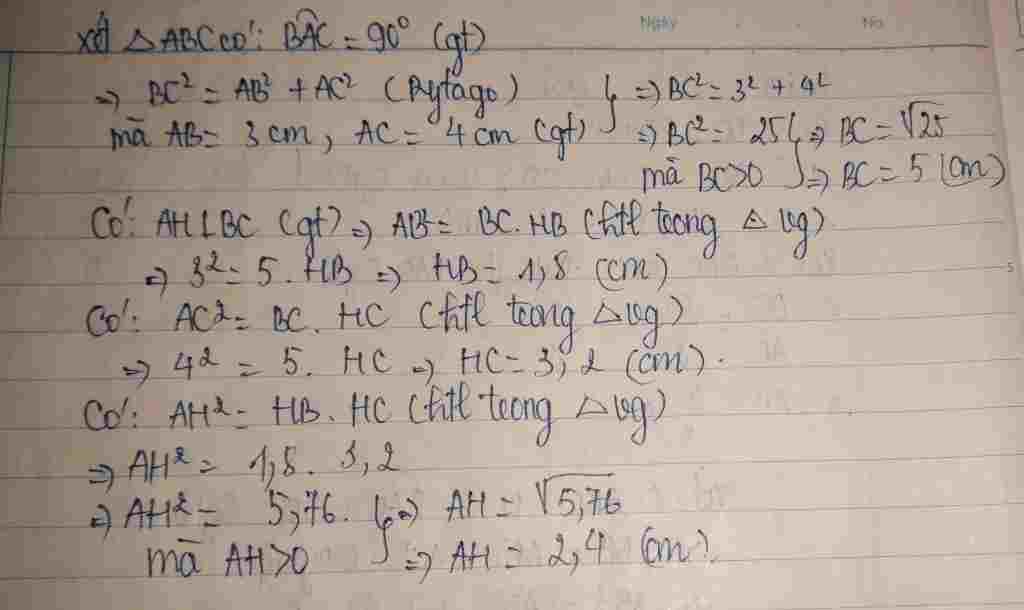 Ngày No
Xét △ABC có: BÂC = 90° (gt)
=> BC² = AB² + AC² (Pytago) } => BC² = 3² + 4²
mà AB = 3 cm, AC = 4 cm (gt) => BC² = 25 } => BC = √25
mà BC>0 => BC = 5 (cm)
Có: AH ⊥ BC (gt) => AB² = BC. HB (htl trong △ vg)
=> 3² = 5. HB => HB = 1,8 (cm)
Có: AC² = BC. HC (htl trong △vg)
=> 4² = 5. HC => HC = 3,2 (cm).
Có: AH² = HB. HC (htl trong △vg)
=> AH² = 1,8. 3,2
=> AH² = 5,76. } => AH = √5,76
mà AH>0 => AH = 2,4 (cm).